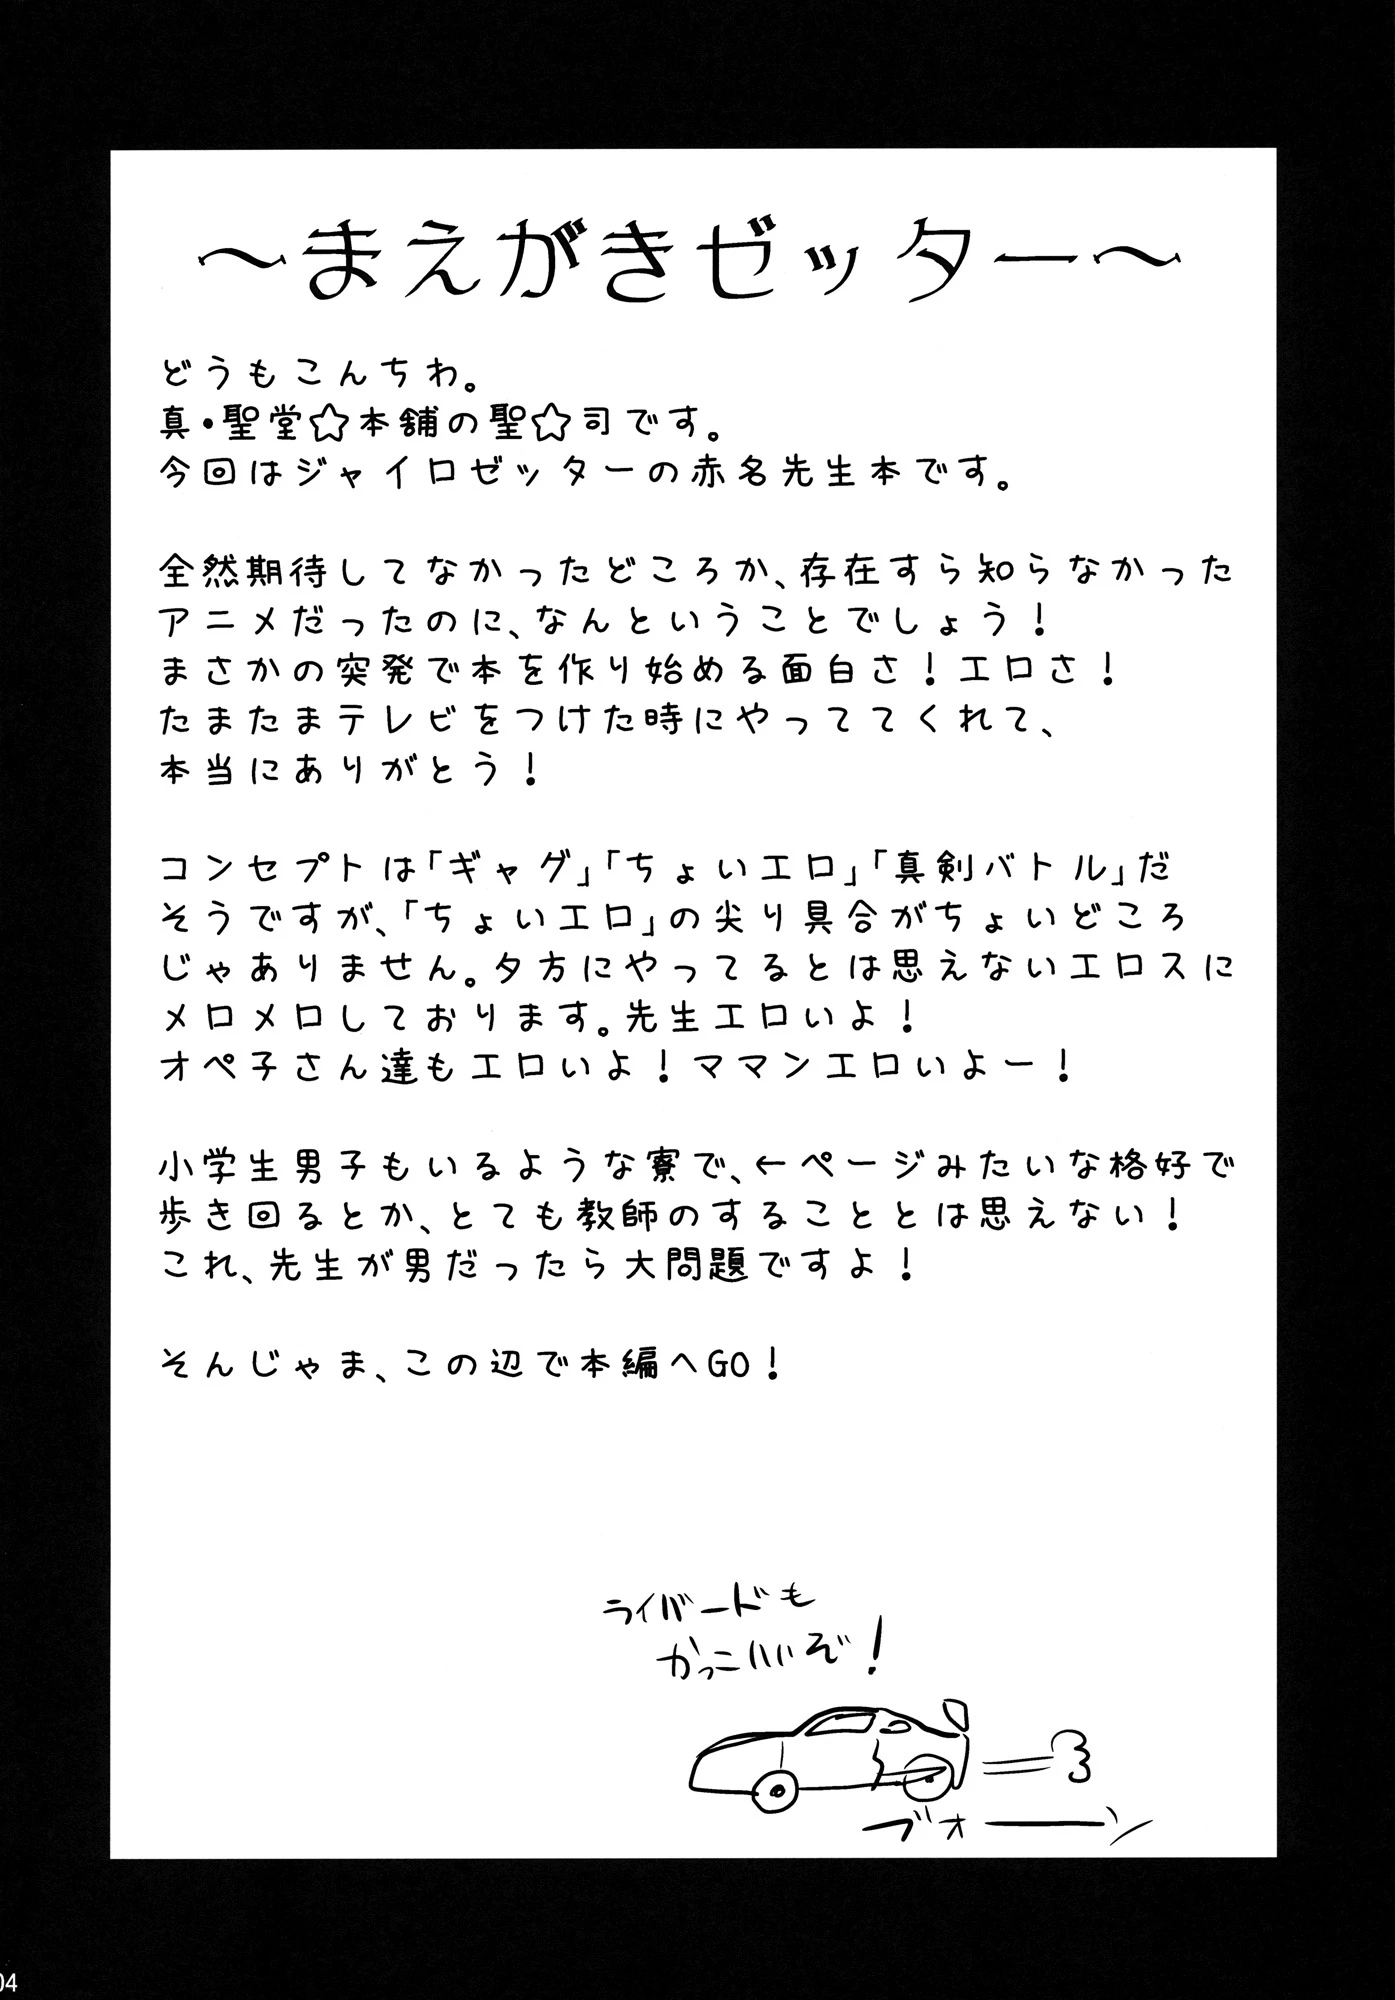 ～まえがきゼッター～
どうもこんちわ。
真・聖堂☆本舗の聖☆司です。
今回はジャイロゼッターの赤名先生本です。
全然期待してなかったどころか、存在すら知らなかった
アニメだったのに、なんということでしょう！
まさかの突発で本を作り始める面白さ！エロさ！
たまたまテレビをつけた時にやっててくれて、
本当にありがとう！
コンセプトは「ギャグ」「ちょいエロ」「真剣バトル」だ
そうですが、「ちょいエロ」の尖り具合がちょいどころ
じゃありません。夕方にやってるとは思えないエロスに
メロメロしております。先生エロいよ！
オペ子さん達もエロいよ！ママンエロいよー！
小学生男子もいるような寮で、←ページみたいな格好で
歩き回るとか、とても教師のすることとは思えない！
これ、先生が男だったら大問題ですよ！
そんじゃま、この辺で本編へGO！
ライバードも
かっこいいぞ！
ブオーーン
04